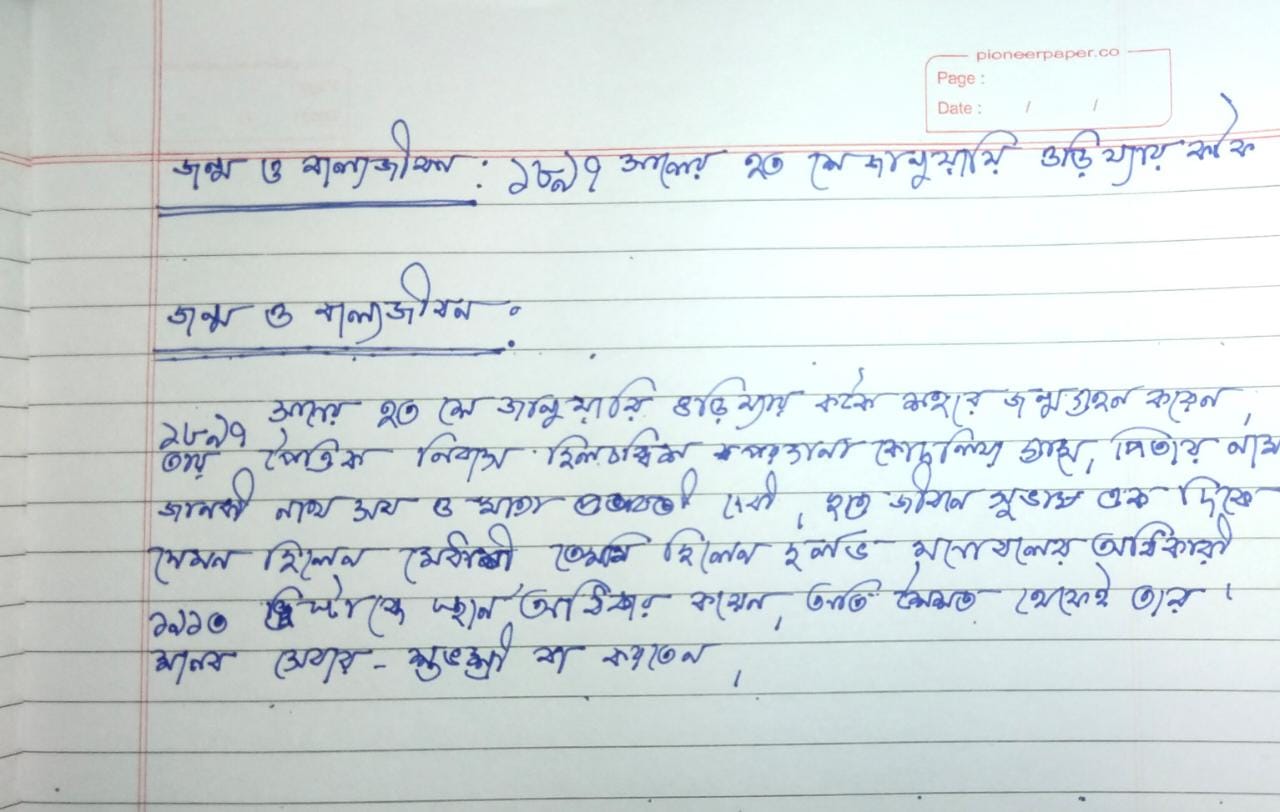 pioneerpaper.co
Page :
Date : / /
জন্ম ও বাল্যজীবন : ১৮৯৭ সালের ২৩ শে জানুয়ারি ওড়িষ্যায় কটক
জন্ম ও বাল্যজীবন :
১৮৯৭ সালের ২৩ শে জানুয়ারি ওড়িষ্যায় কটক শহরে জন্মগ্রহন করেন,
তার পৈত্রিক নিবাস ছিল চব্বিশ পরগানা গ্রামে, পিতার নাম
জানকী নাথ বসু ও মাতা প্রভাবতী দেবী, ছাত্র জীবনে সুভাষ এক দিকে
যেমন ছিলেন মেধাবী তেমনি ছিলেন দুর্লভ মনোবলের অধিকারী
১৯১৩ স্থান অধিকার করেন, থেকেই তার
মানব সেবার - করতেন,